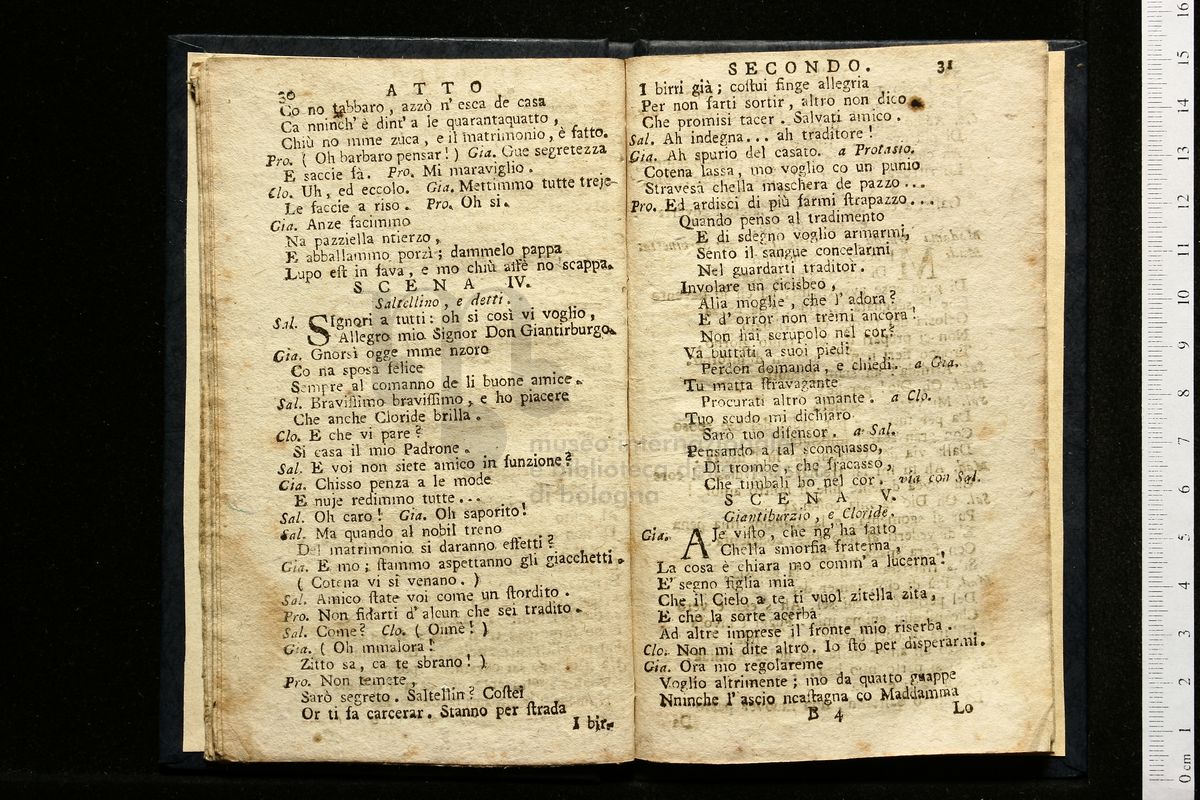 30 ATTO
Co no tabbaro, azzò n' esca de casa
Ca nninch' è dint' a le quarantaquatto,
Chiù no mme zuca, e il matrimonio, è fatto.
Pro. ( Oh barbaro pensar! ) Gia. Gue segretezza
E saccie fà. Pro. Mi maraviglio.
Clo. Uh, ed eccolo. Gia. Mettimmo tutte treje
Le faccie a riso. Pro. Oh si.
Gia. Anze facimmo
Na pazziella ntierzo,
E abballammo porzì; dammelo pappa
Lupo est in fava, e mo chiù affè no scappa.
SCENA IV.
Saltellino, e detti.
Sal. SIgnori a tutti: oh si così vi voglio,
Allegro mio Signor Don Giantirburgo.
Gia. Gnorsì ogge mme nzoro
Co na sposa felice
Sempre al comanno de li buone amice.
Sal. Bravissimo bravissimo, e ho piacere
Che anche Cloride brilla.
Clo. E che vi pare?
Si casa il mio Padrone.
Sal. E voi non siete amico in funzione?
Gia. Chisso penza a le mode
E nuje redimmo tutte...
Sal. Oh caro! Gia. Oh saporito!
Sal. Ma quando al nobil treno
Del matrimonio si daranno effetti?
Gia. E mo; stammo aspettanno gli giacchetti.
( Cotena vi si venano. )
Sal. Amico state voi come un stordito.
Pro. Non fidarti d' alcun che sei tradito.
Sal. Come? Clo. ( Oimè! )
Gia. ( Oh mmalora!
Zitto sa, ca te sbrano! )
Pro. Non temete,
Sarò segreto. Saltellin? Costei
Or ti fa carcerar. Stanno per strada
I bir-
SECONDO. 31
I birri già; costui finge allegria
Per non farti sortir, altro non dico
Che promisi tacer. Salvati amico.
Sal. Ah indegna... ah traditore!
Gia. Ah spurio del casato. a Protasio.
Cotena lassa, mo voglio co un punio
Stravesà chella maschera de pazzo...
Pro. Ed ardisci di più farmi strapazzo...
Quando penso al tradimento
E di sdegno voglio armarmi,
Sento il sangue concelarmi
Nel guardarti traditor.
Involare un cicisbeo,
Alla moglie, che l' adora?
E d' orror non tremi ancora!
Non hai scrupolo nel cor?
Va buttati a suoi piedi
Perdon domanda, e chiedi. a Gia.
Tu matta stravagante
Procurati altro amante. a Clo.
Tuo scudo mi dichiaro
Sarò tuo difensor. a Sal.
Pensando a tal sconquasso,
Di trombe, che fracasso,
Che timbali ho nel cor. via con Sal.
SCENA V.
Giantiburzio, e Cloride.
Gia. AJe visto, che ng' ha fatto
Chella smorfia fraterna,
La cosa è chiara mo comm' a lucerna!
E' segno figlia mia
Che il Cielo a te ti vuol zitella zita,
E che la sorte acerba
Ad altre imprese il fronte mio riserba.
Clo. Non mi dite altro. Io sto per disperarmi.
Gia. Ora mo regolareme
Voglio altrimente; mo da quatto guappe
Nninche l' ascio ncastagna co Maddamma
B 4 Lo
museo internazionale
biblioteca della musica
di bologna